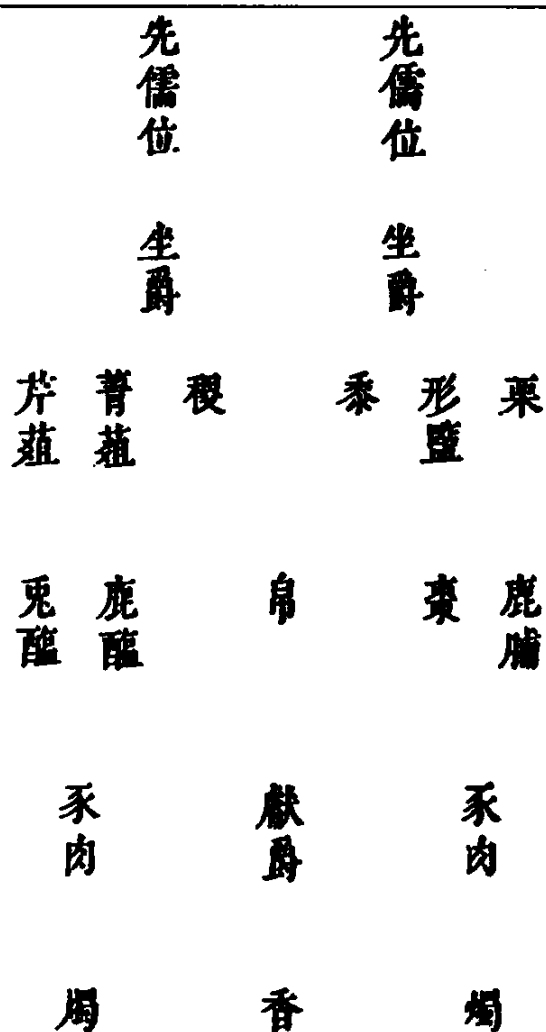 先儒位
先儒位
坐爵
坐爵
栗
形鹽
黍
稷
菁葅
芹葅
鹿脯
棗
帛
鹿醢
兎醢
豕肉
獻爵
豕肉
燭
香
燭